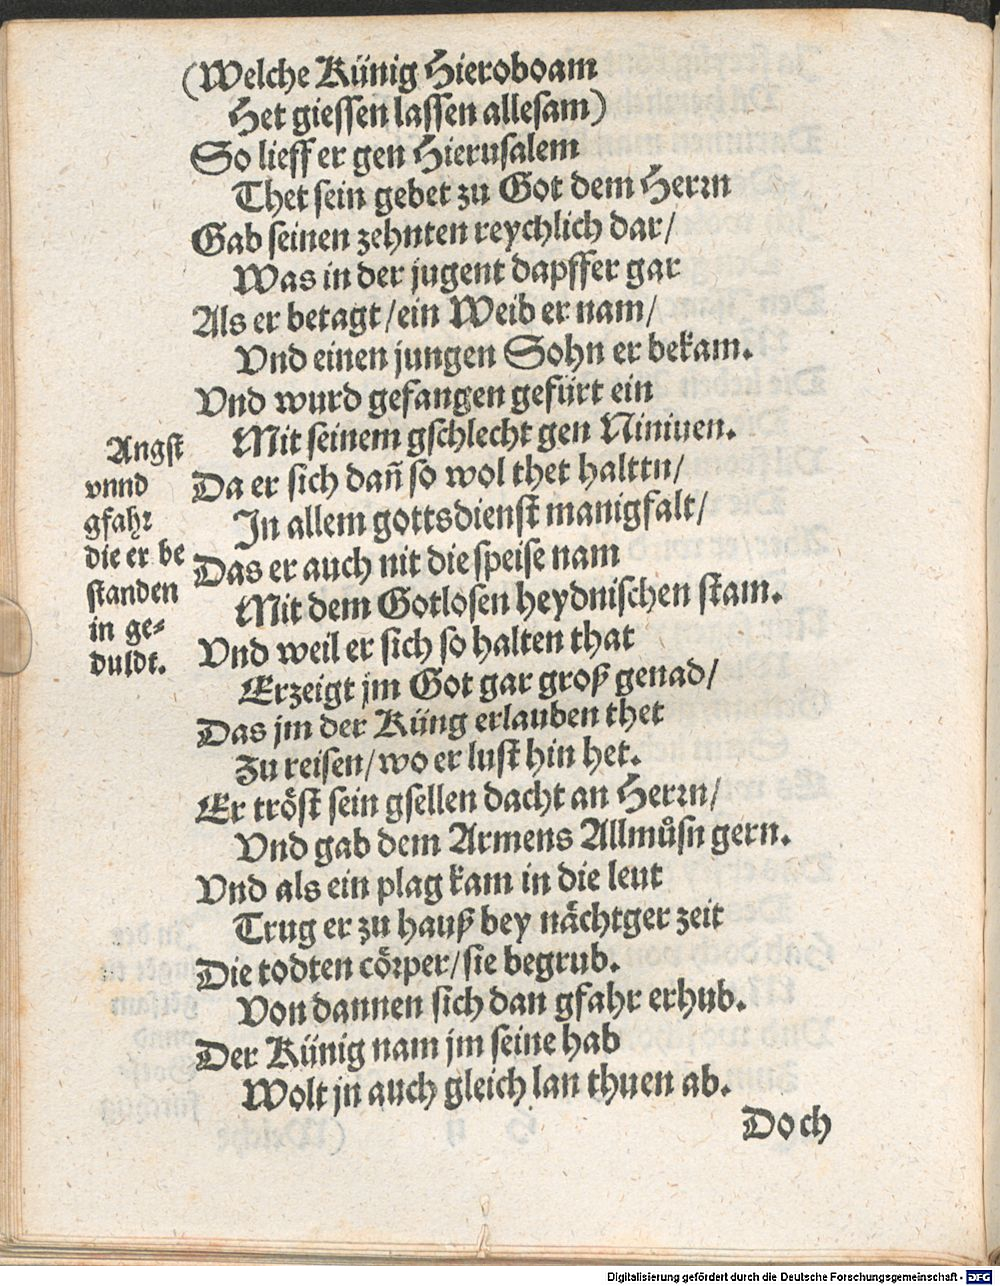 (Welche Künig Hieroboam
Het giessen lassen allesam)
So lieff er gen Hierusalem
Thet sein gebet zu Got dem Herrn
Gab seinen zehnten reychlich dar/
Was in der jugent dapffer gar
Als er betagt/ein Weib er nam/
Vnd einen jungen Sohn er bekam.
Vnd wurd gefangen gefürt ein
Mit seinem gschlecht gen Niniuen.
Da er sich dañ so wol thet halttn/
In allem gottsdienst manigfalt/
Das er auch nit die speise nam
Mit dem Gotlosen heydnischen stam.
Vnd weil er sich so halten that
Erzeigt jm Got gar groß genad/
Das jm der Küng erlauben thet
Zu reisen/wo er lust hin het.
Er tröst sein gsellen dacht an Herrn/
Vnd gab dem Armens Allmůsn gern.
Vnd als ein plag kam in die leut
Trug er zu hauß bey nächtger zeit
Die todten cörper/sie begrub.
Von dannen sich dan gfahr erhub.
Der Künig nam jm seine hab
Wolt jn auch gleich lan thuen ab.
Doch
Angst
vnnd
gfahr
die er be
standen
in ge-
duldt.
Digitalisierung gefördert durch die Deutsche Forschungsgemeinschaft - DFG